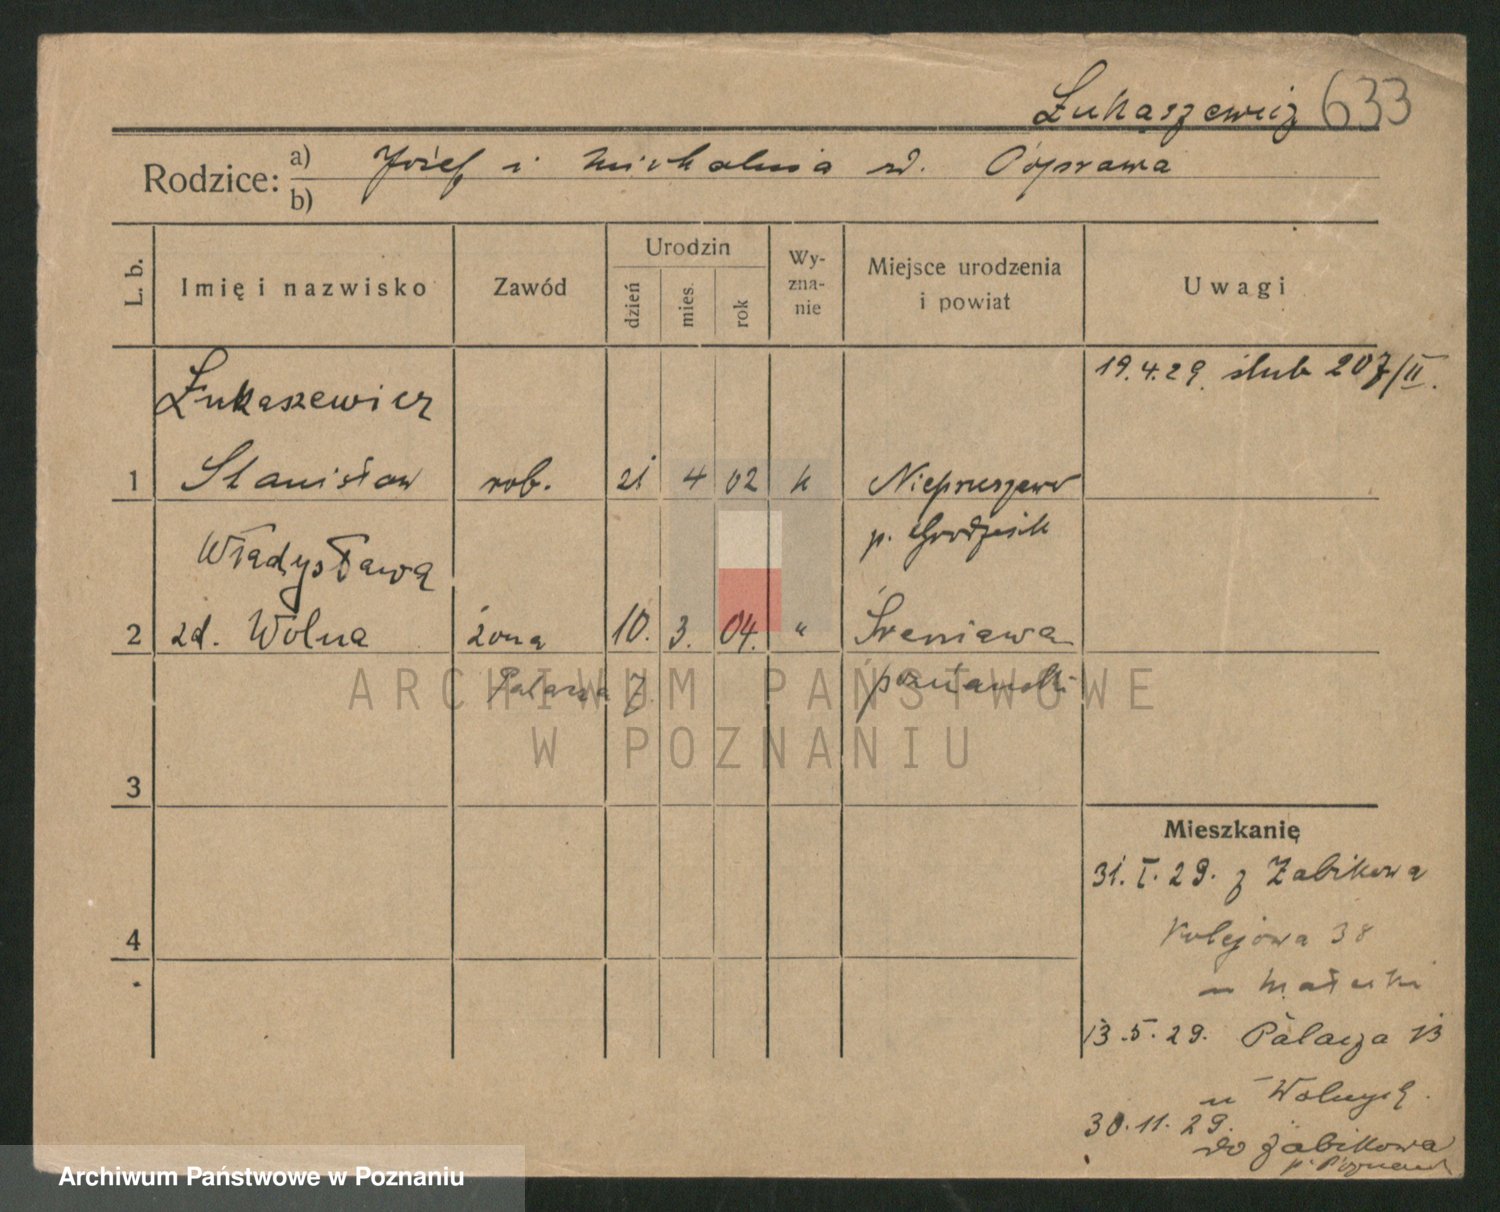 Łukaszewicz 633
Rodzice: a) Józef i Michalina zd. Poprawa
b)
L. b. Imię i nazwisko Zawód Urodzin dzień mies. rok Wy-zna-nie Miejsce urodzenia i powiat Uwagi
19.4.29. ślub 207/II.
Łukaszewicz
1 Stanisław rob. 21 4 02 k Niepruszewo
p. Grodzisk
Władysława
2 zd. Wolna żona 10. 3. 04. " Sreniawa
Palacza poznański
ARCHIWUM PAŃSTWOWE
W POZNANIU
3
Mieszkanię
31. I. 29. z Żabikowa
4 Kolejowa 38
u Małecki
13.5.29. Palacza 13
u Wolnych.
30.11.29.
do Żabikowa
p. Poznań
Archiwum Państwowe w Poznaniu